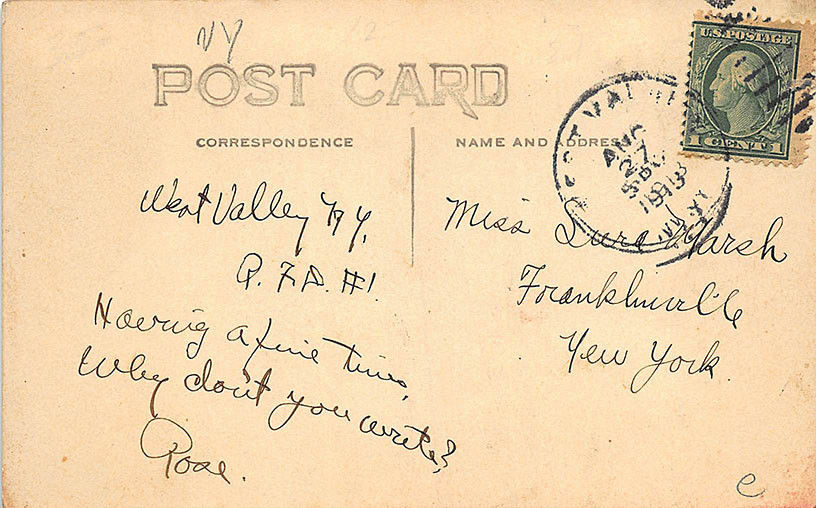 NY
POST CARD
CORRESPONDENCE
NAME AND ADDRESS
U.S. POSTAGE
1 CENT 1
WEST VALLEY
AUG
27
5 PM
1913
West Valley N.Y.
R.F.D. #1.
Having a fine time,
Why don't you write?
Rose.
Miss Lura Marsh
Franklinville
New York.
e